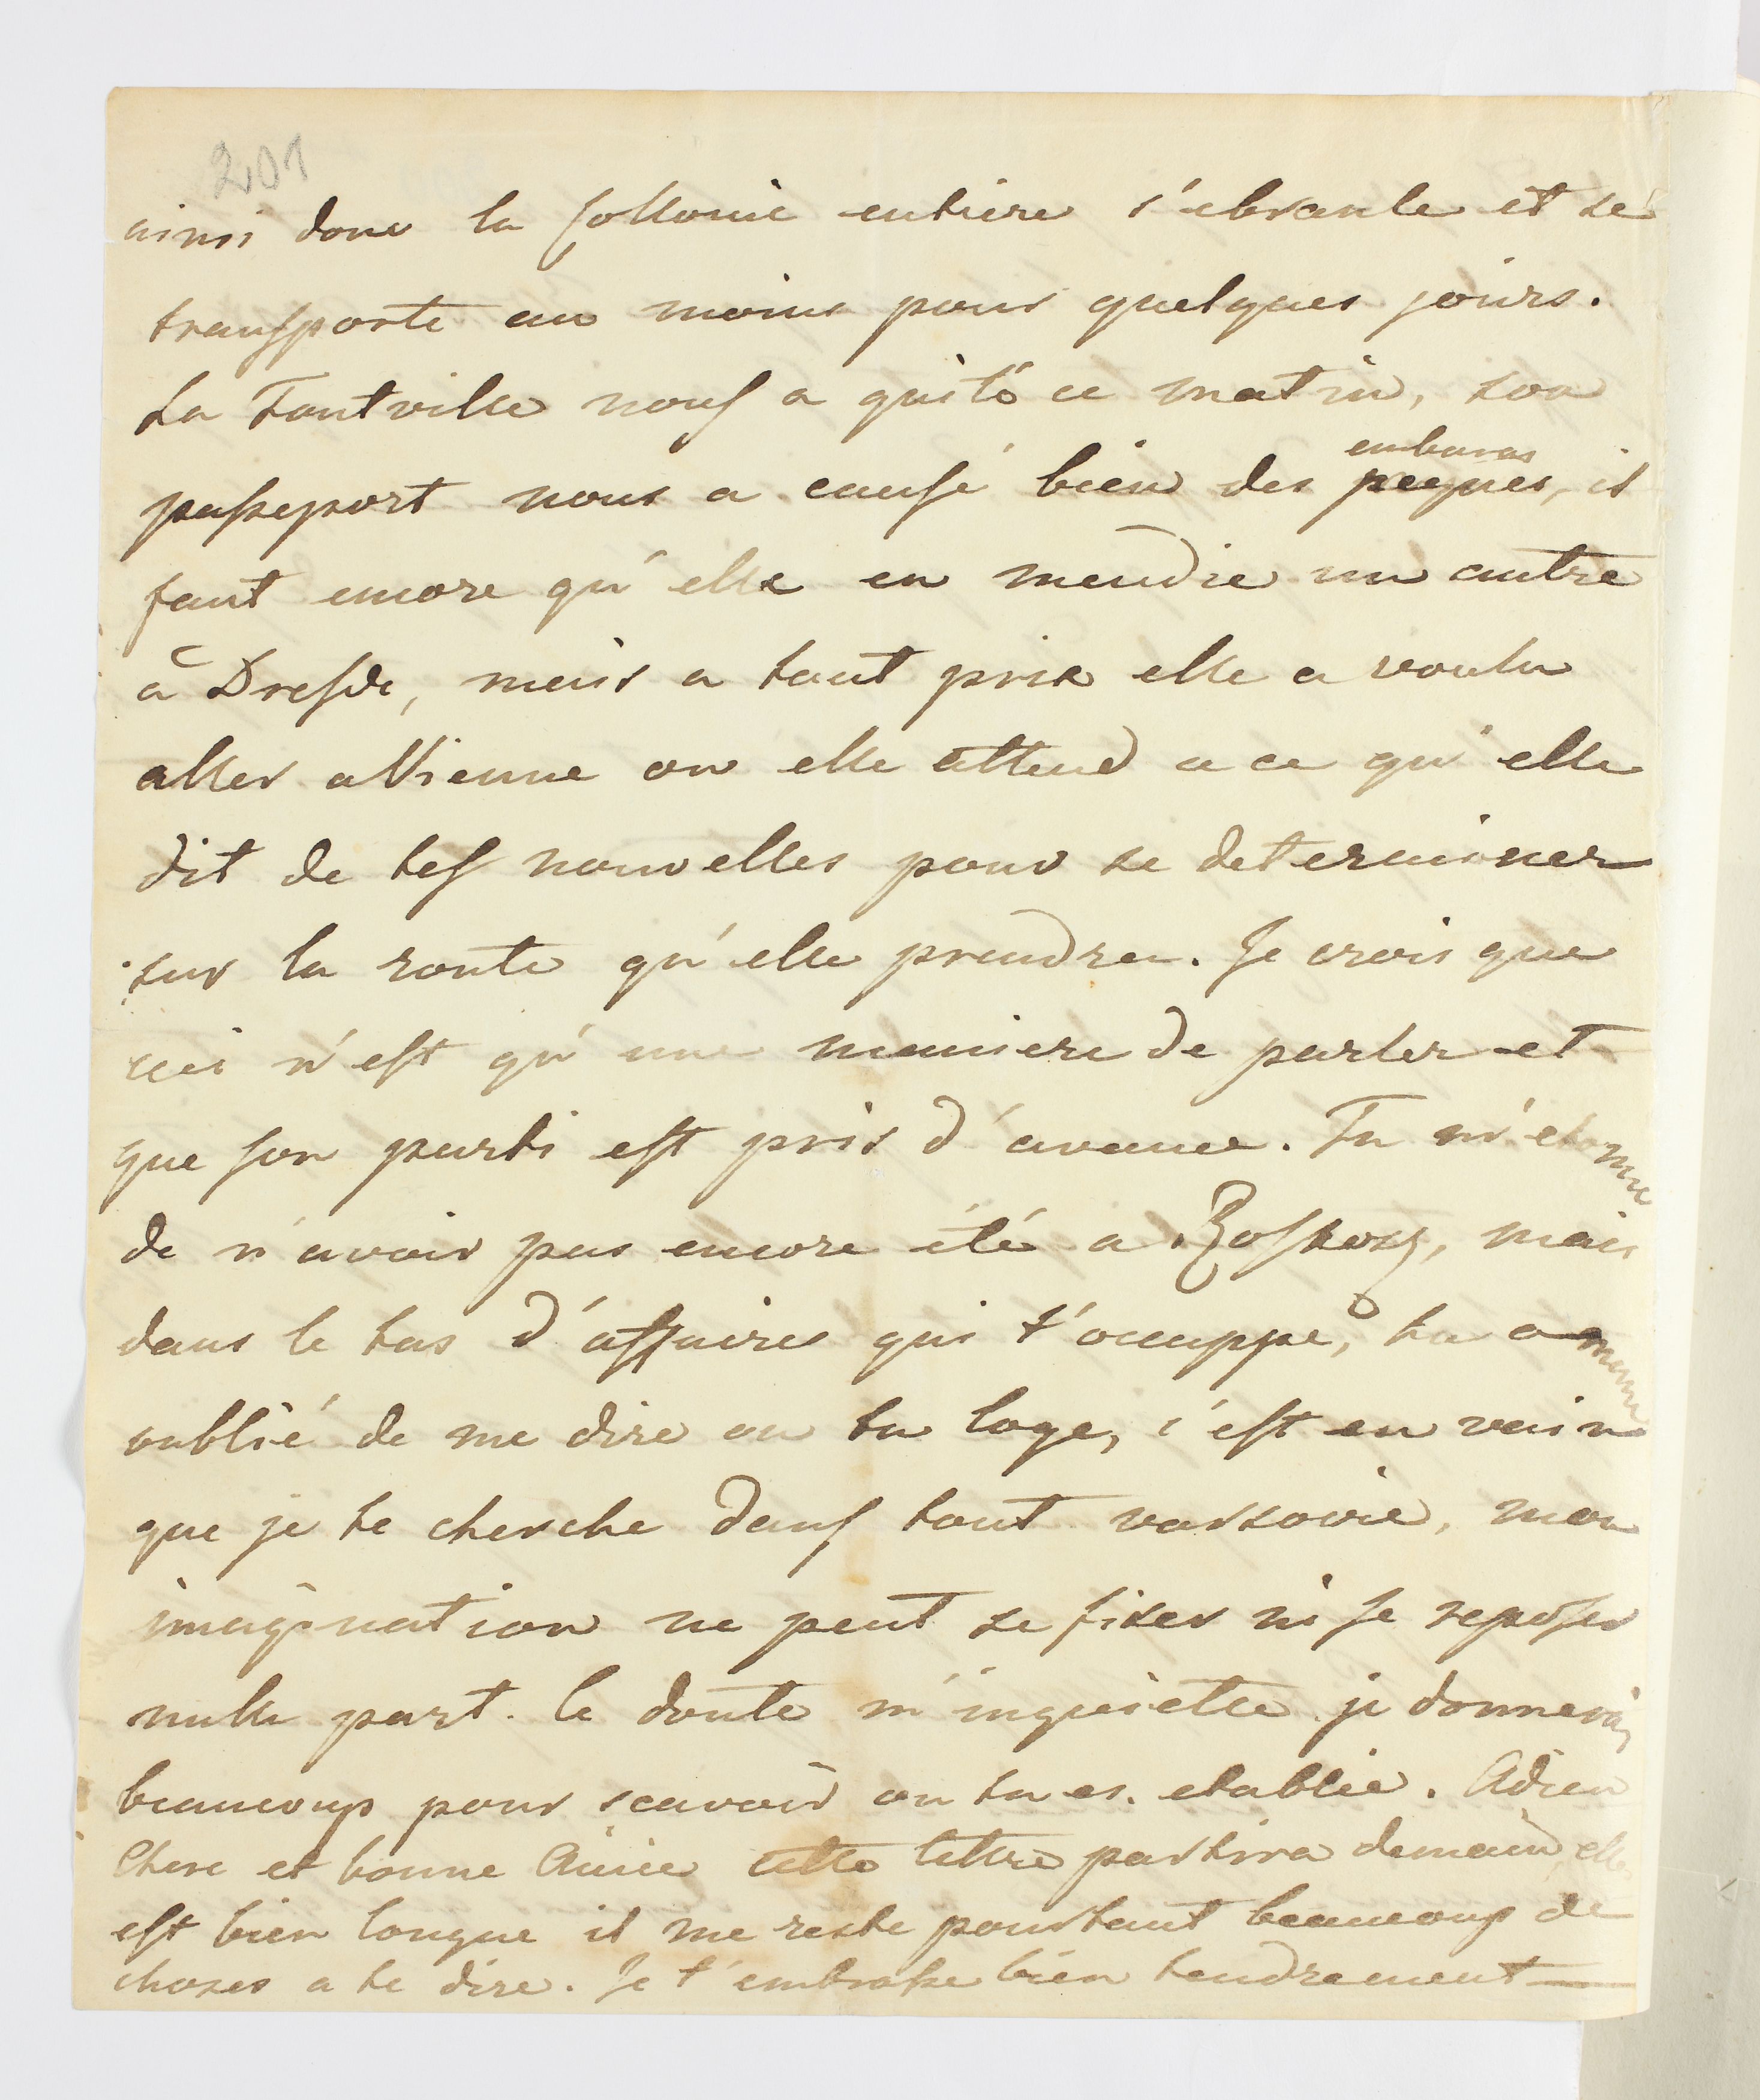 201
ainsi donc la collonie entiere s'ebranle et se
transporte au moins pour quelques jours.
La Tantville nous a quité ce matin, son
embaras
passeport nous a causé bien des peynes, il
faut encore qu'elle en mendie un autre
à Dresde, mais a tout prix elle a voulu
aller a Vienne ou elle attend a ce qu'elle
dit de tes nouvelles pour se determiner
sur la route qu'elle prendra. Je crois que
ceci n'est qu'une maniere de parler et
que son parti est pris d'avance. Tu m'etonne
de n'avoir pas encore été a Roskosz, mais
dans le tas d'affaires qui t'occuppe, tu a meme
oublié de me dire ou tu loge, c'est en vain
que je te cherche dans tout varsovie, mon
imagination ne peut se fixer ni se reposer
nulle part. le doute m'inquiette je donnerais
beaucoup pour scavoir ou tu es etablie. Adieu
Chere et bonne Amie cette lettre partira demain, elle
est bien longue il me reste pourtant beaucoup de
choses a te dire. Je t'embrasse bien tendrement